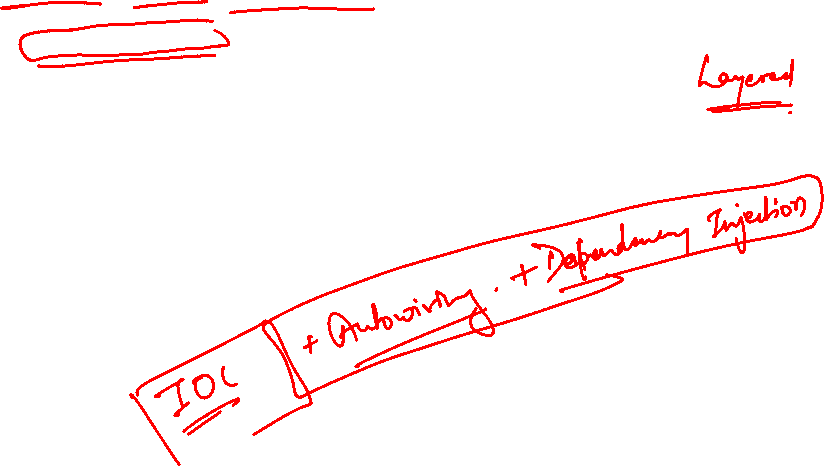 Layered
IOC + Autowiring. + Dependency Injection